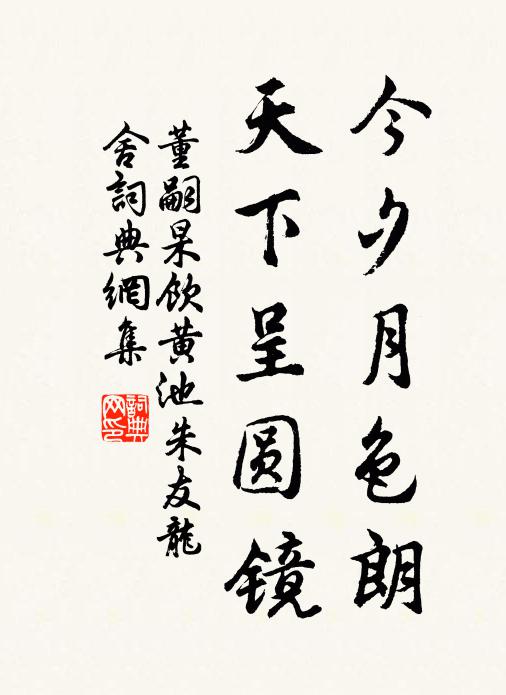 今夕月色朗
天下呈圆镜
董嗣杲饮黄池朱友龍
舍詞典網集
詞典网印